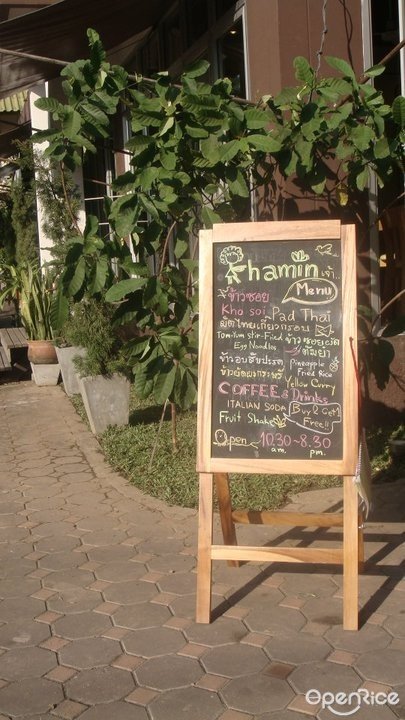 Khamin เจ้า..
Menu
ข้าวซอย
Kho Soi
Pad Thai
ผัดไทยเกี๊ยวกรอบ
Tom-Yum Stir-Fried
Egg Noodles
ข้าวซอยผัด
ข้าวอบสับปะรด
Pineapple
Fried Rice
Yellow Curry
COFFEE & Drinks
ITALIAN SODA
Buy 2 Get 1
Free!!
Fruit Shake
Open 10.30-8.30
am. pm.
OpenRice